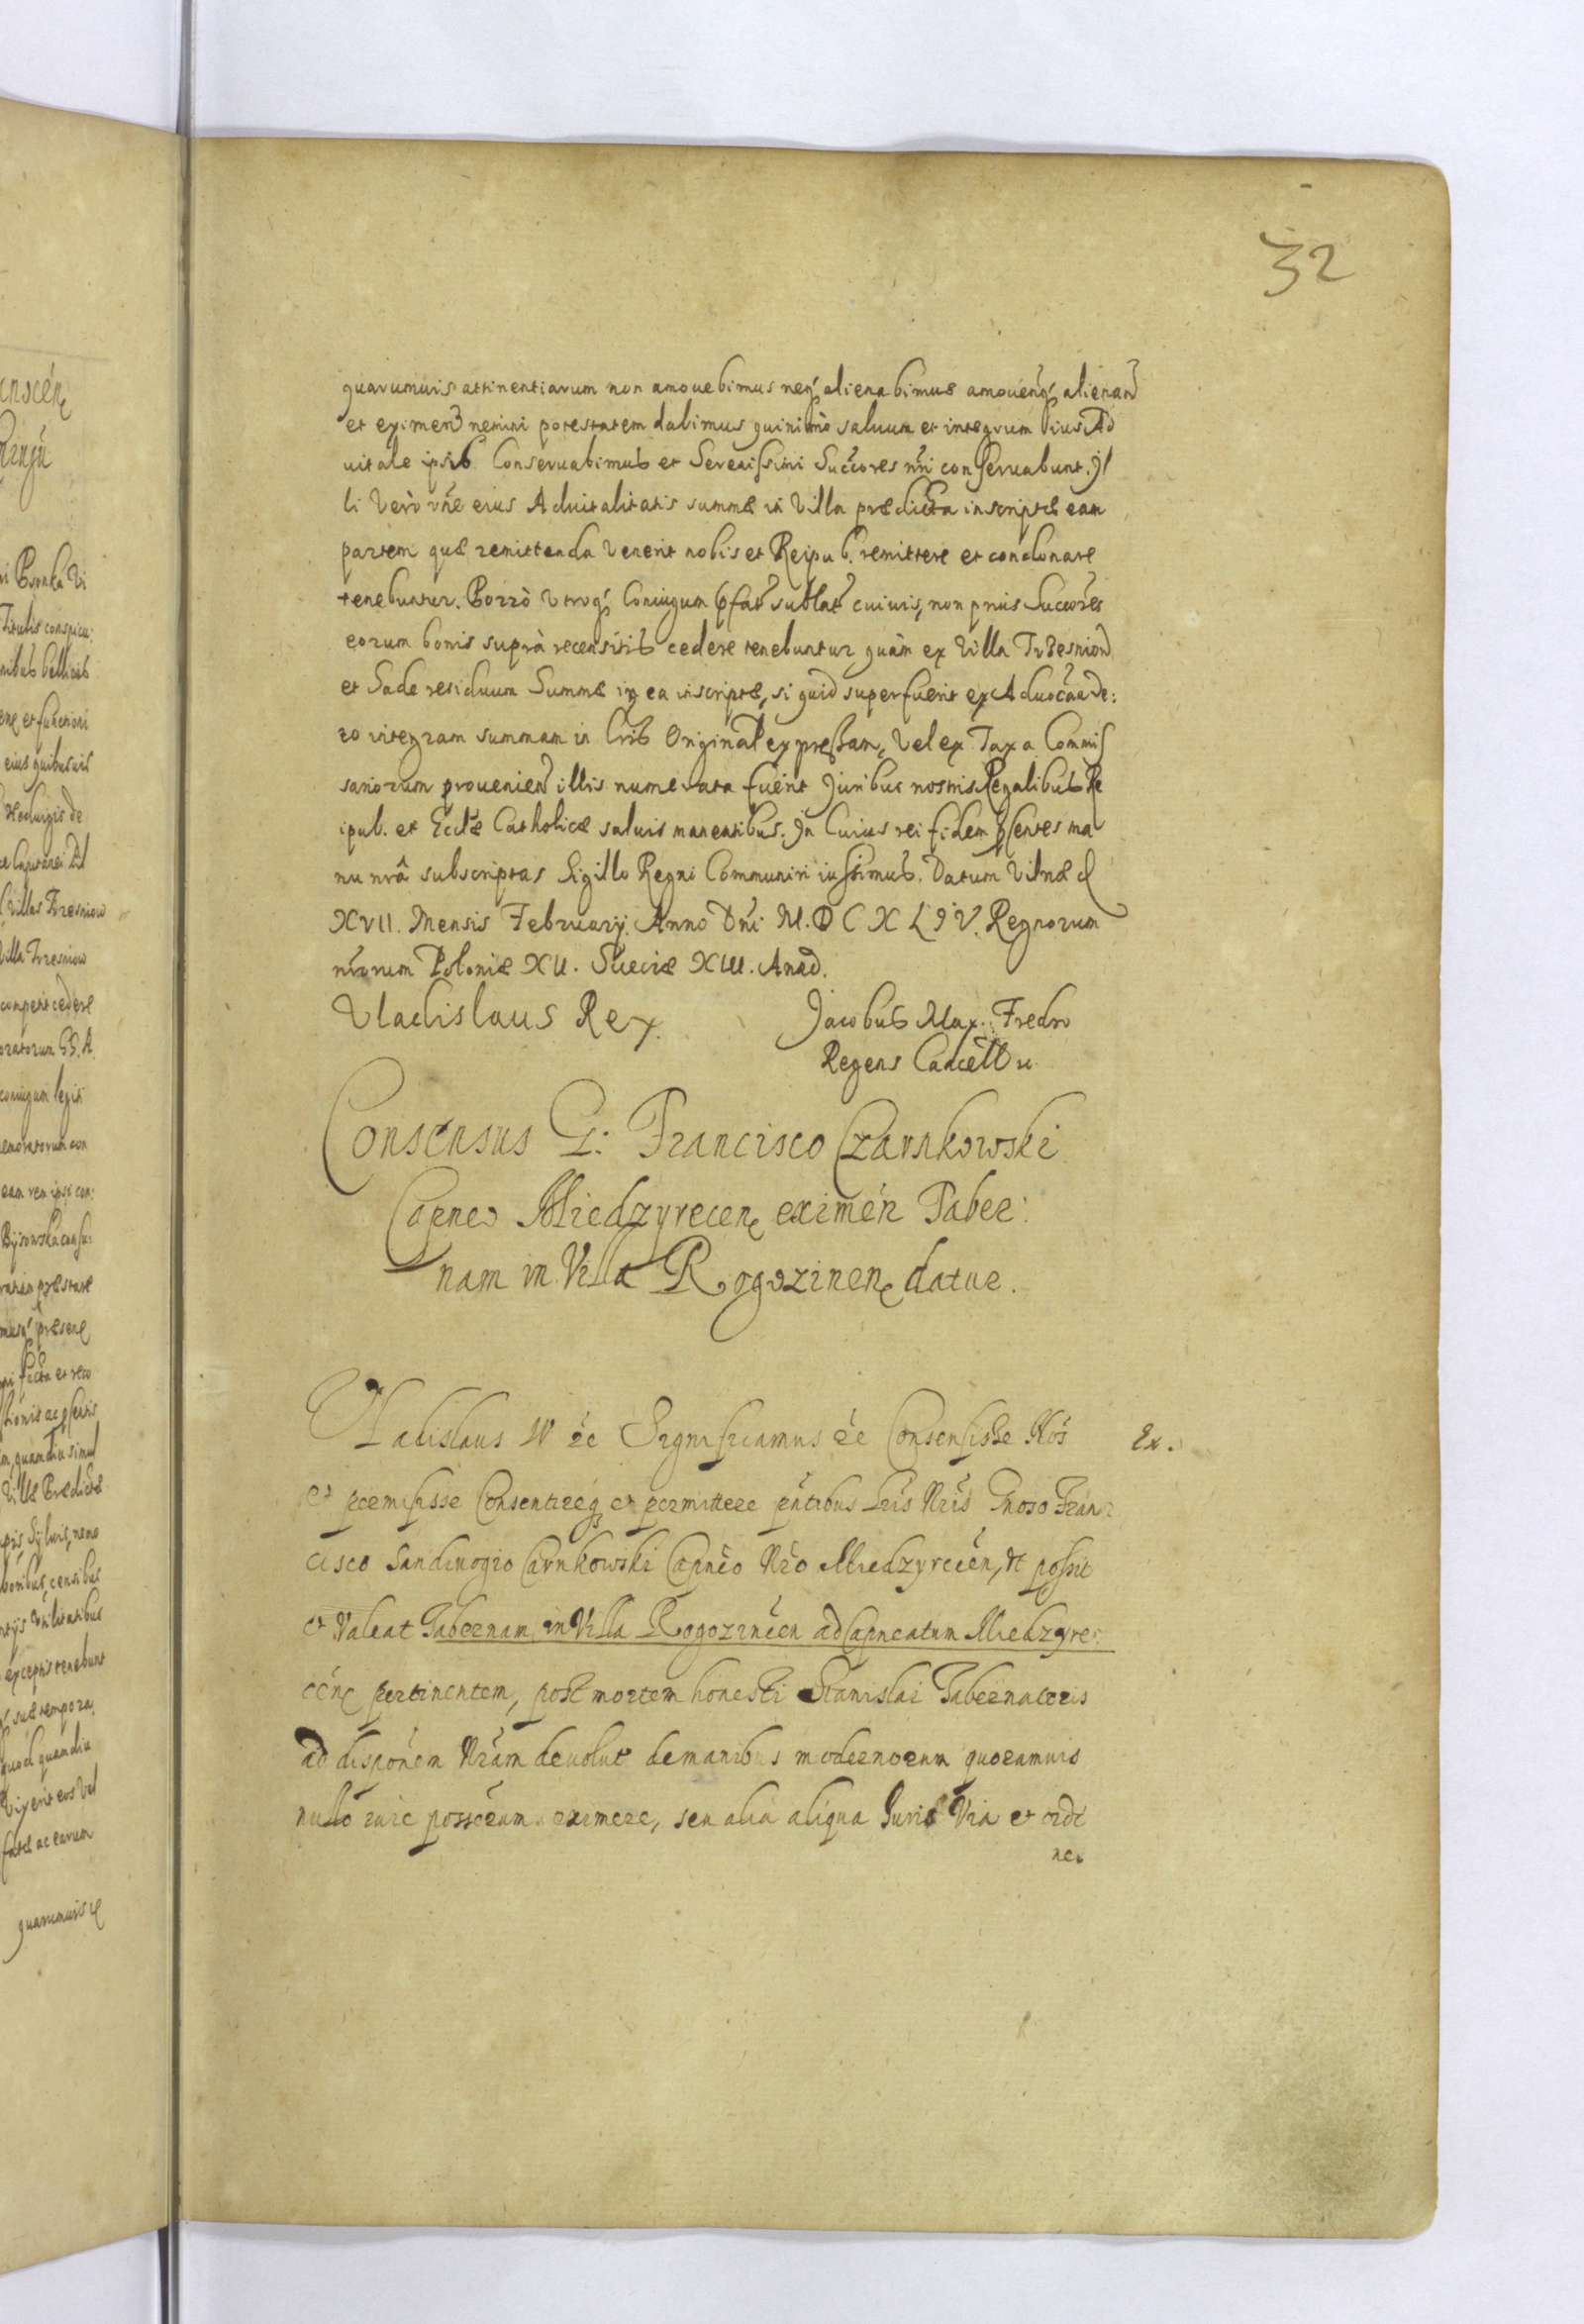 32
quarumuis attinentiarum non amouebimus neq́ alienabimus amouenq́ alienand
et eximend nemini potestatem dabimus quinimò saluum et integrum Ius Ad
uitale ipsis Conseruabimus et Serenissimi Succores nri conseruabunt. Il
li Verò rne eius Aduitalitatis summæ in Villa prædicta inscriptæ eam
partem quæ remittenda Venerit nobis et Reipub. remittere et condonare
tenebuntur. Porrò Vtroq́ Coniugum pfat sublat cuiuis, non prius Succores
eorum bonis suprà recensitis cedere tenebuntur quàm ex Villa Trzesniow
et Sade residuum Summæ in ea inscriptæ, si quid superfuerit ex Aduocaade:
ro integram summam in Lris Original expressam, Vel ex Taxa Commis
sariorum prouenien illis numerata fuerit Iuribus nostris Regalibus Re
ipub. et Eccłæ Catholicæ saluis manentibus. In Cuius rei fidem psentes ma
nu nrâ subscriptas Sigillo Regni Communiri iussimus. Datum Vilnæ d
XVII. Mensis February. Anno Dni M.DCXLIV. Regnorum
nrorum Poloniæ XII. Sueciæ XIII. Anno.
Vladislaus Rex.
Jacobus Max. Fredro
Regens Cancell
Consensus G: Francisco Czarnkowski
Capneo Miedzyrecen eximen Taber:
nam in Villa Rogozinen datur.
Vladislaus IV ec Significamus ec Consensisse Nos
Ex.
et permisisse Consentireq et permittere pntibus Lris Nris Gnoso Fran:
cisco Sandiuogio Carnkowski Capneo Nro Miedzyrecen, Vt possit
et Valeat Tabernam in Villa Rogozinecen ad Capneatum Miedzyre:
cen pertinentem, post mortem honesti Stanislai Tabernatoris
ad disponem Nram deuolut de manibus modernorum quorumuis
nullo iure possorum eximere, seu alia aliqua Iuris Via et ordi
ne